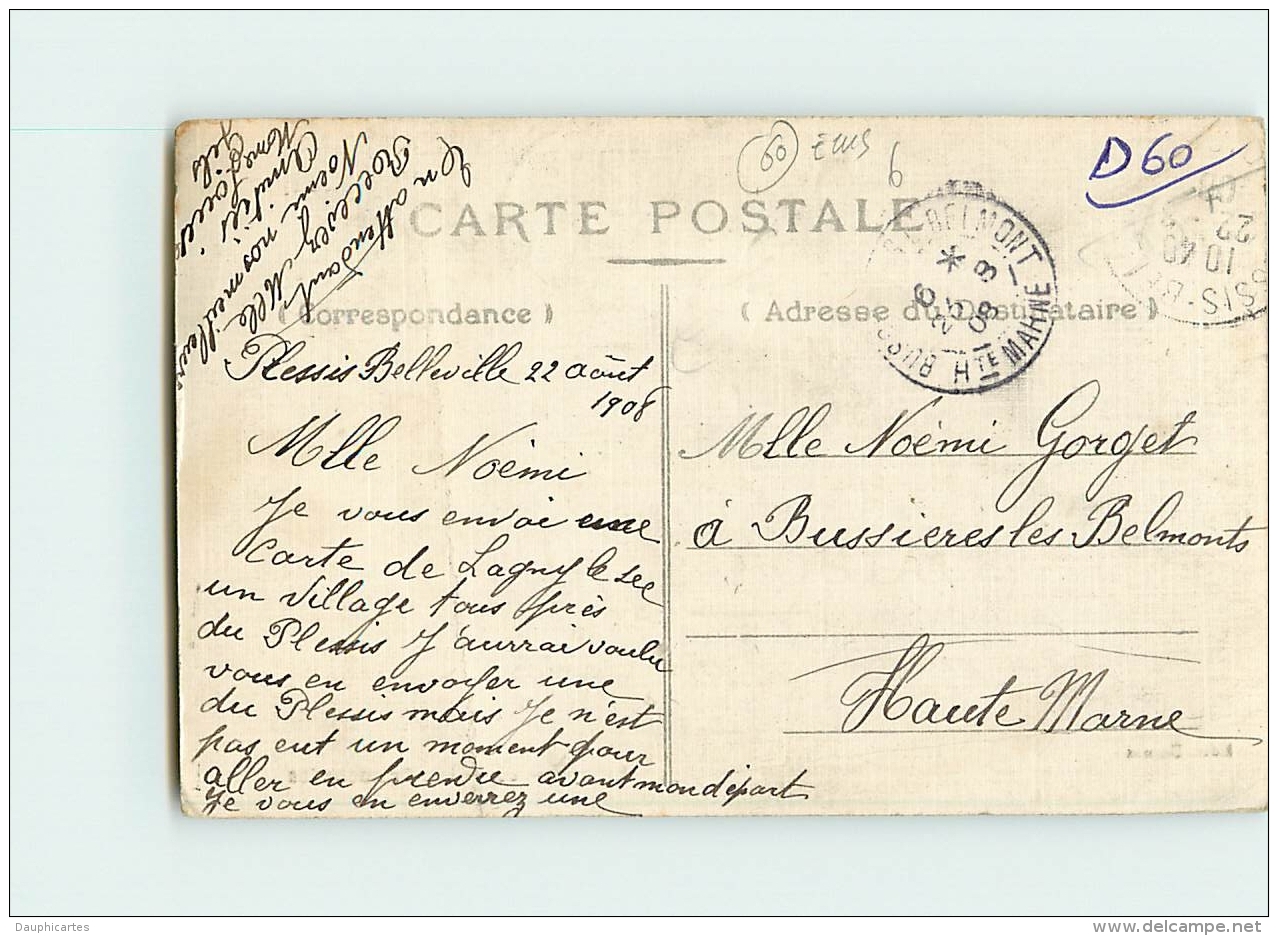 60
EMS
6
D60
CARTE POSTALE
( Correspondance )
( Adresse du Destinataire )
BELMONT
*
6
25 - 8
08
HTE MARNE
10 40
22
Plessis Belleville 22 août
1908
Mlle Noémi
Je vous envoi une
carte de Lagny le sec
un village tous près
du Plessis J'aurrai voulu
vous en envoyer une
du Plessis mais je n'est
pas eut un moment pour
aller en prendre avant mon départ
Je vous en enverrez une
En attendant
Recevez Mlle
Noémi nos meilleurs
Amitiés
Mlle Noémi Gorget
à Bussieres les Belmonts
Haute Marne
Dauphicartes
www.delcampe.net